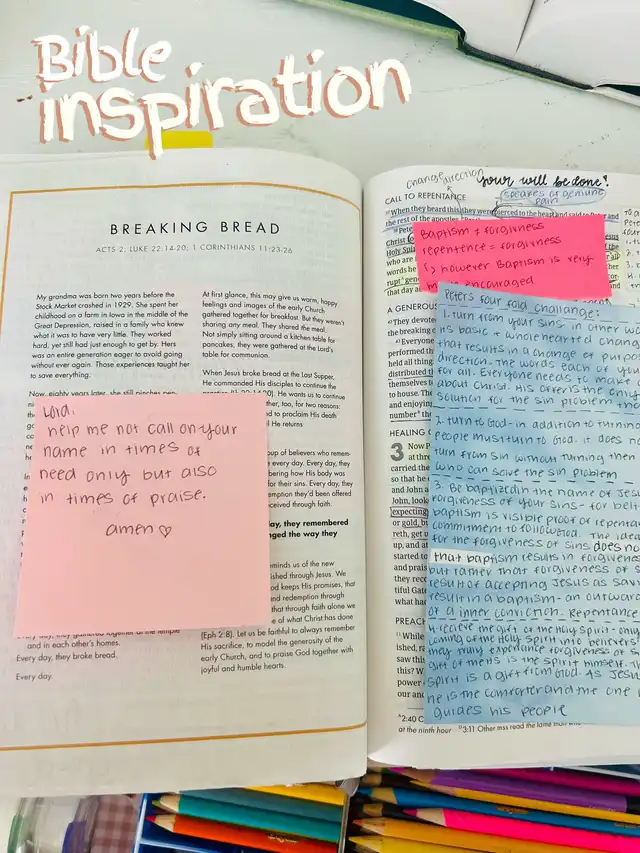 Bible
inspiration
BREAKING BREAD
ACTS 2; LUKE 22:14-20; 1 CORINTHIANS 11:23-26
My grandma was born two years before the
Stock Market crashed in 1929. She spent her
childhood on a farm in Iowa in the middle of the
Great Depression, raised in a family who knew
what it was to have very little. They worked
hard, yet still had just enough to get by. Hers
was an entire generation eager to avoid going
without ever again. Those experiences taught her
to save everything.
Now, eighty years later, she still pinches
Lord,
help me not call on your
name in times of
need only but also
in times of praise.
amen
and in each other's homes.
Every day, they broke bread.
Every day.
At first glance, this may give us warm, happy
feelings and images of the early Church
gathered together for breakfast. But they weren't
sharing any meal. They shared the meal.
Not simply sitting around a kitchen table for
pancakes, they were gathered at the Lord's
table for communion.
When Jesus broke bread at the Last Supper,
He commanded His disciples to continue the
He wants us to continue
ther, too, for two reasons:
d to proclaim His death
He returns
oup of believers who remem-
every day. Every day, they
bering how His body was
for their sins. Every day, they
emption they'd been offered
ceived through faith.
ay, they remembered
ged the way they
minds us of the new
ished through Jesus. We
od keeps His promises, that
nd redemption through
that through faith alone we
e of what Christ has done
(Eph 2:8). Let us be faithful to always remember
His sacrifice, to model the generosity of the
early Church, and to praise God together with
joyful and humble hearts.
change direction
your will be done!
CALL TO REPENTANCE
speaks of genuine
pain
When they heard this, they were pierced to the heart and said to Peter and
the rest of the apostles
Baptism + forgivness
repentence = forgivness
however Baptism is very
encouraged
Peters four fold challange:
1. turn from your sins in other wo
its basic + wholehearted chang
that results in a change of purpos
direction. The words each of you
for all. Everyone needs to make
about Christ. His offer is the only
solution for the sin problem the
2. turn to God - in addition to turning
people must turn to God. it does no
turn from sin without turning then
who can solve the sin problem
3. Be baptized in the name of Jesus
forgiveness of your sins - for belie
baptism is visible proof of repentan
commitment to follow God. The idea
for the forgiveness of sins does no
that baptism results in forgivenes
but rather that forgiveness of s
result of accepting Jesus as savi
result in a baptism - an outward
of a inner conviction. Repentance
4. receive the gift of the Holy spirit - only
coming of the Holy Spirit into believers
they truly experience forgiveness of s
gift of the HS is the spirit himself. Th
spirit is a gift from God. As Jesus
he is the comforter and the one
guides his people
A GENEROUS
They devote
the breaking
Everyone
performed th
held all things
distributed t
themselves to
to house. The
and enjoying
number
HEALING
3 Now P
at three
carried the
so that he
and John
John, look
expecting
or gold, bu
reth, get u
up, and at
started to
and praisi
they reco
tiful Gate
what had
PREACH
While
ished, ra
saw this
this? W
power
our and
2:40
at the ninth hour 3:11 Other mss read the lame